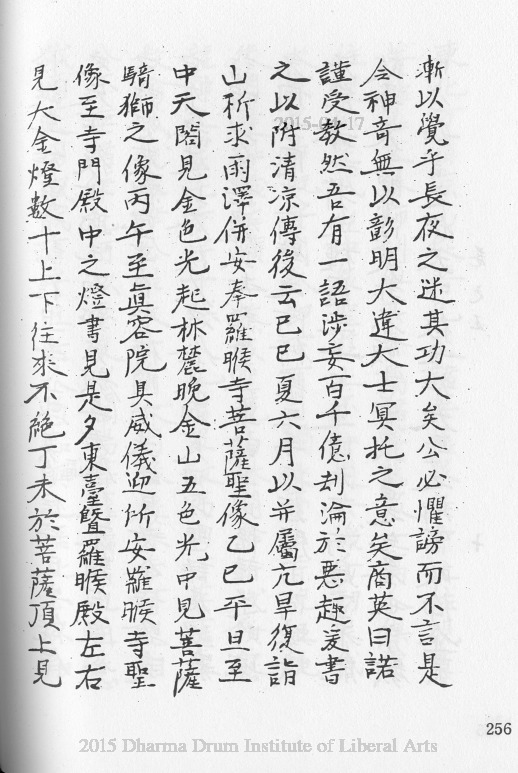 漸以覺乎長夜之迷其功大矣公必懼謗而不言是
令神奇無以彰明大違大士冥托之意矣商英曰諾
謹受教然吾有一語涉妄百千億刦淪於惡趣爰書
之以附清凉傳後云己巳夏六月以并屬亢旱復詣
山祈求雨澤併安奉羅睺寺菩薩聖像乙巳平旦至
中天閣見金色光起林麓晚金山五色光中見菩薩
騎獅之像丙午至眞容院具威儀迎所安羅睺寺聖
像至寺門殿中之燈書見是夕東臺曁羅睺殿左右
見大金燈數十上下往來不絶丁未於菩薩頂上見
256
2015-04-17
2015 Dharma Drum Institute of Liberal Arts